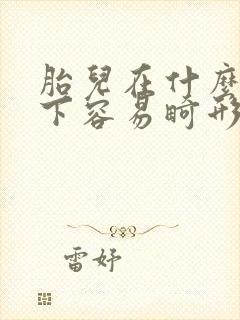 胎兒在什麼
下容易畸形
雷妤